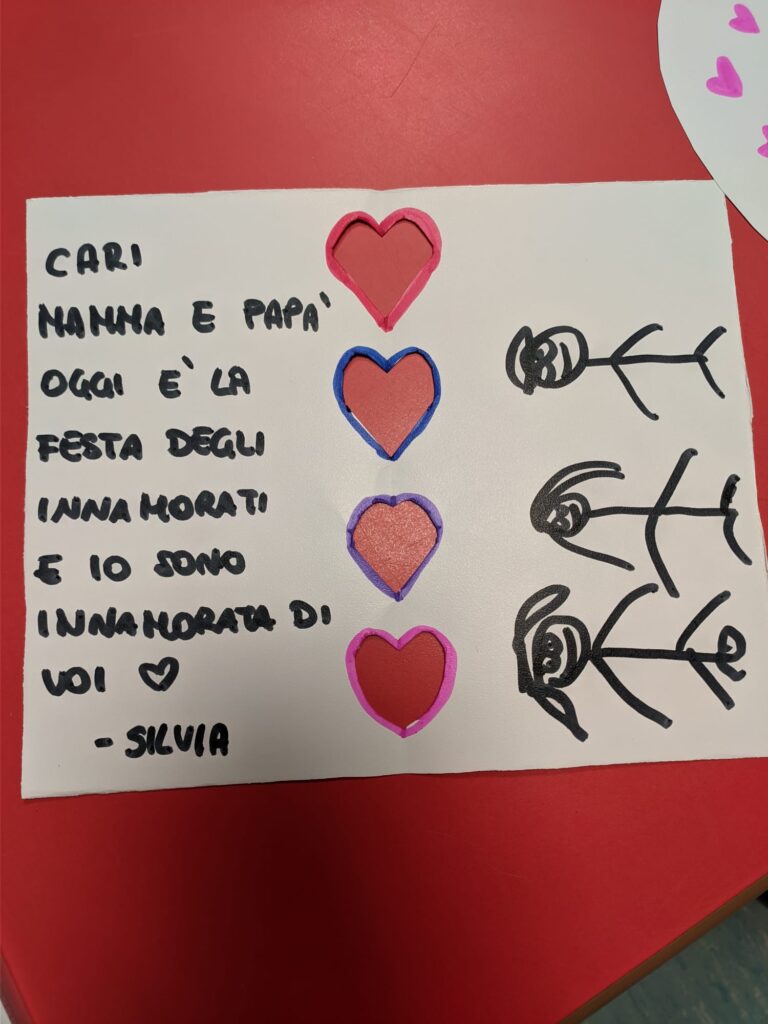 CARI
MAMMA E PAPA'
OGGI E' LA
FESTA DEGLI
INNAMORATI
E IO SONO
INNAMORATA DI
VOI ♡
- SILVIA